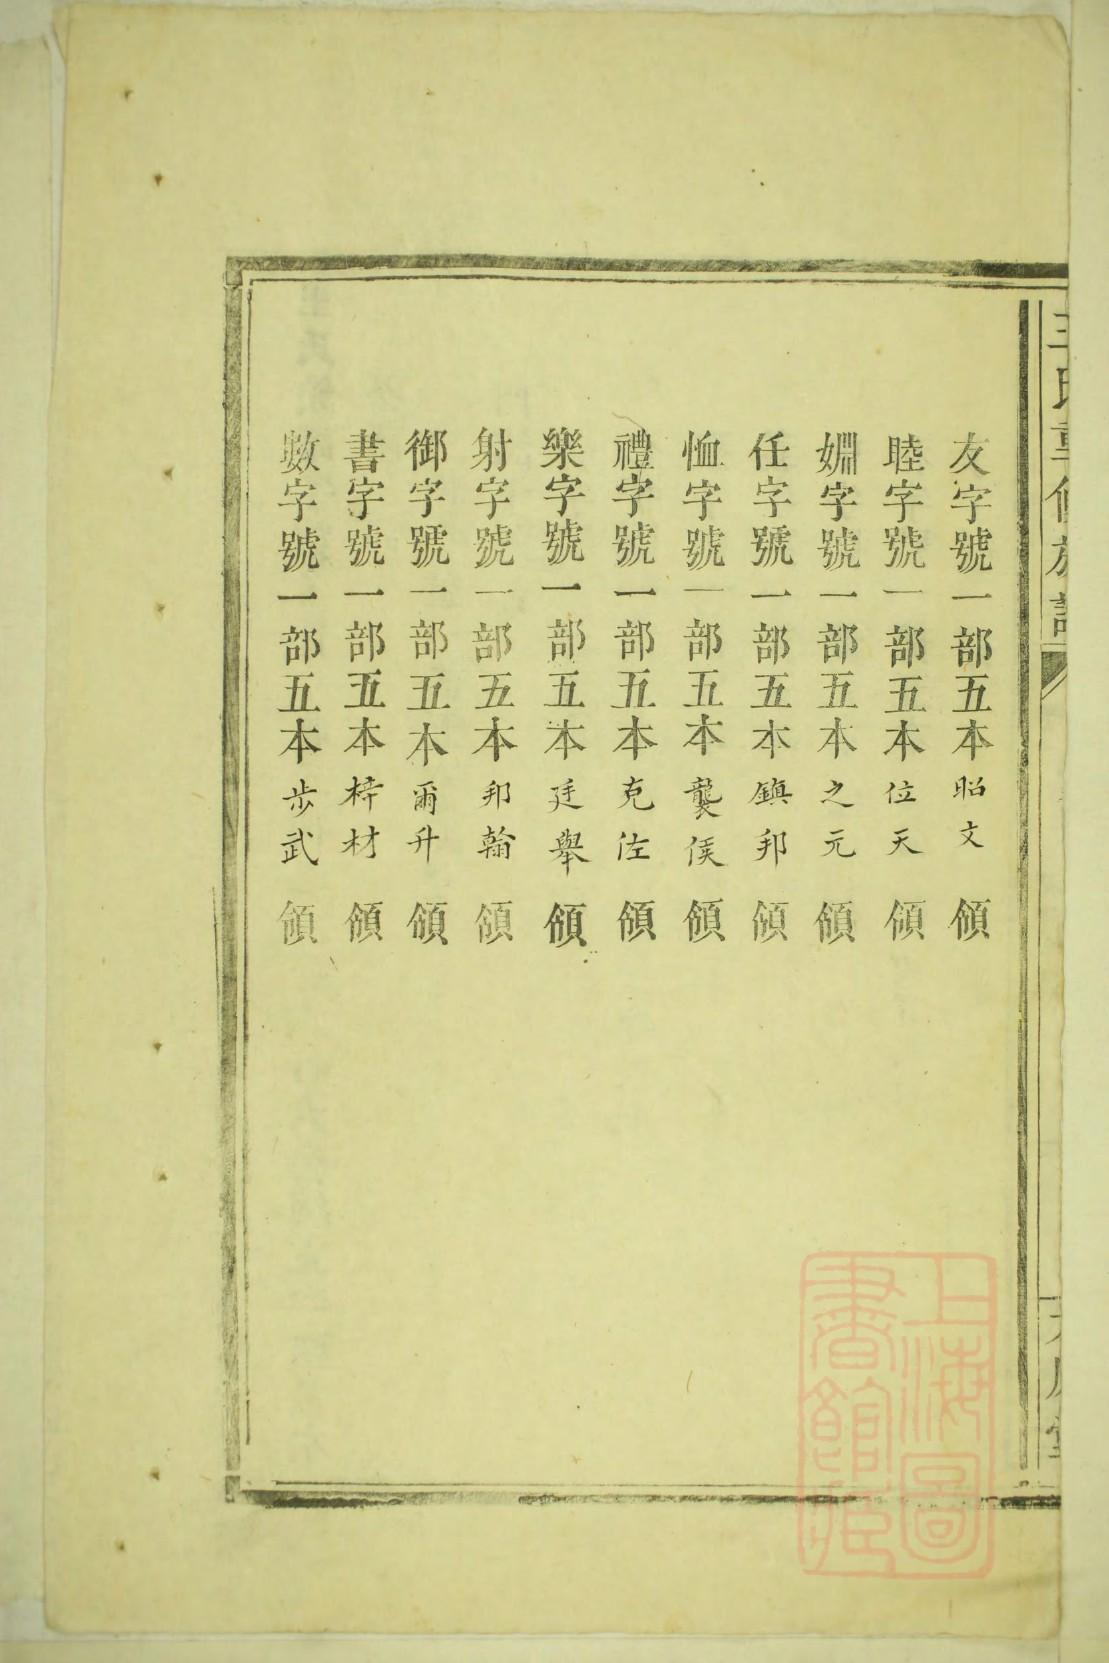 王氏重修族譜
友字號一部五本昭文領
睦字號一部五本位天領
婣字號一部五本之元領
任字號一部五本鎮邦領
恤字號一部五本襲侯領
禮字號一部五本克佐領
樂字號一部五本廷舉領
射字號一部五本邦翰領
御字號一部五本爾升領
書字號一部五本梓材領
數字號一部五本步武領
上海圖
書館藏